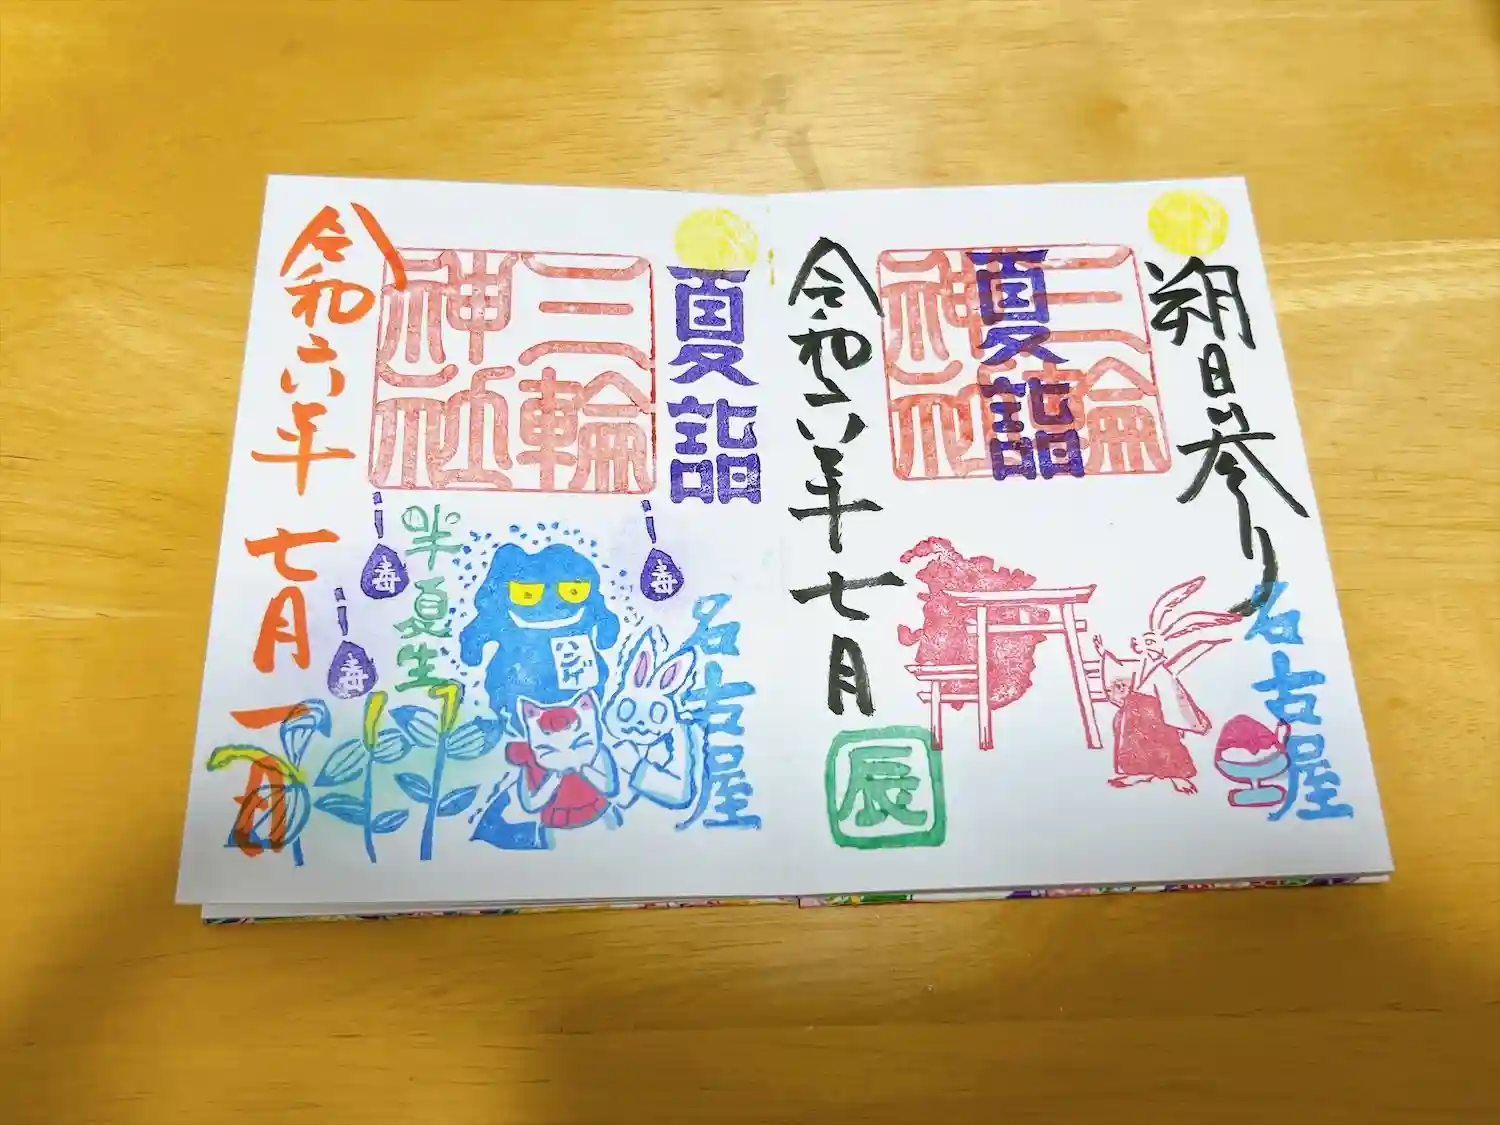 朔日参り
夏詣
三輪
神社
名古屋
令和六年七月
辰
夏詣
三輪
神社
名古屋
半夏生
毒
毒
毒
令和六年七月一日